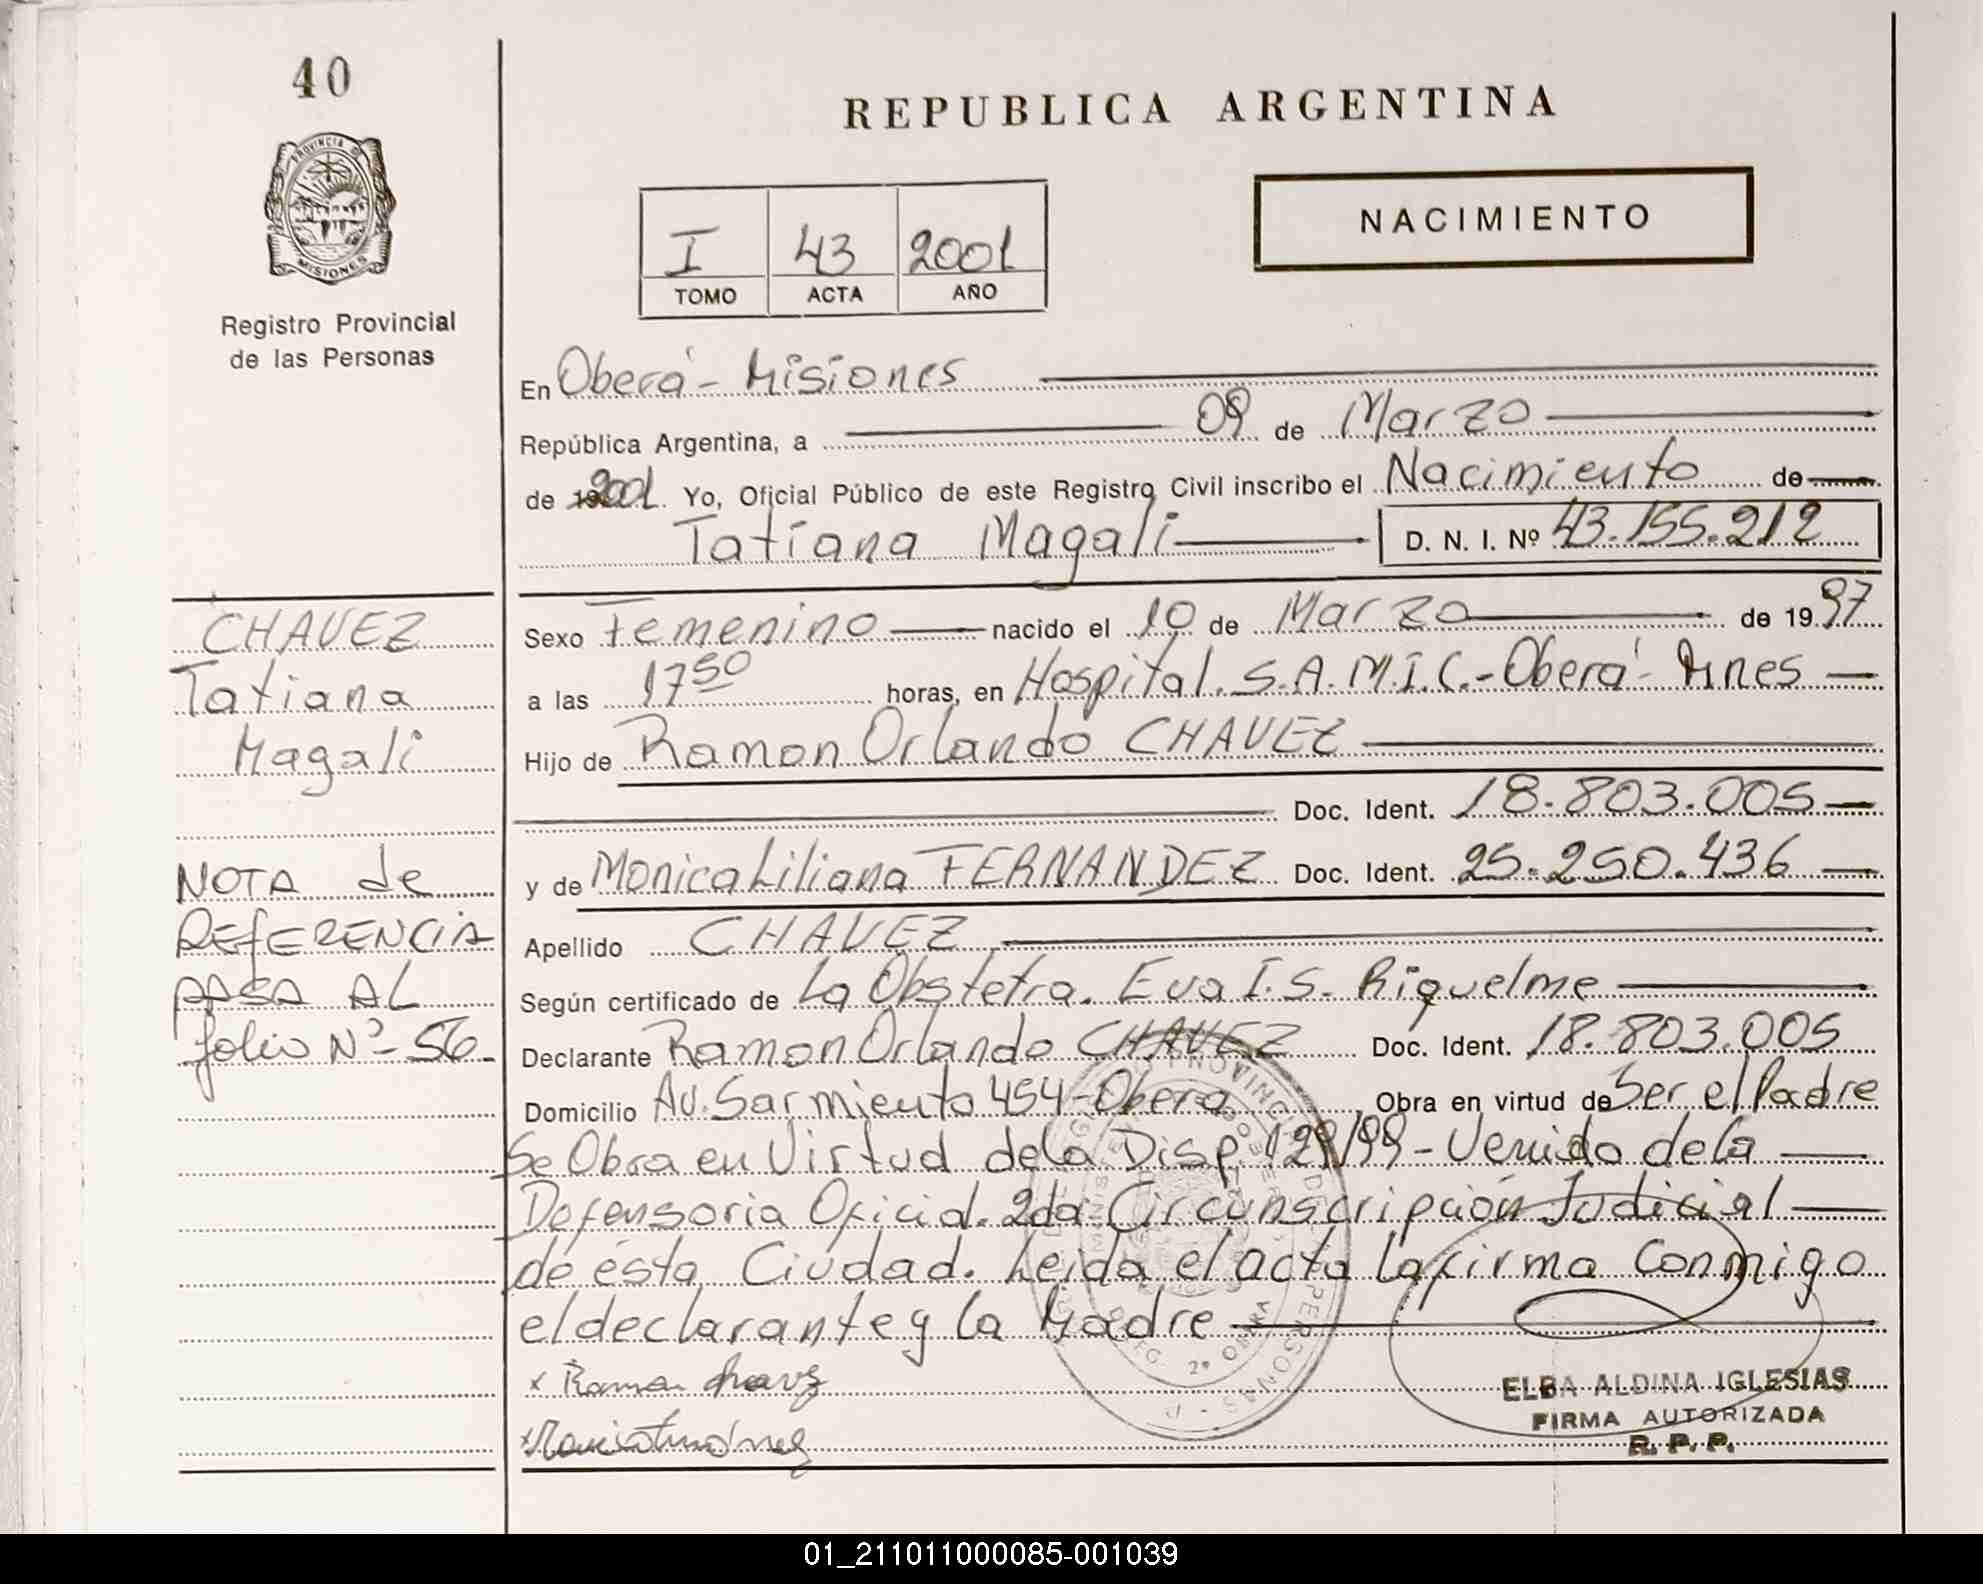 40
PROVINCIA DE
MISIONES
Registro Provincial
de las Personas
REPUBLICA ARGENTINA
NACIMIENTO
I 43 2001
TOMO ACTA AÑO
En Oberá - Misiones
República Argentina, a 09 de Marzo
de 2001. Yo, Oficial Público de este Registro Civil inscribo el Nacimiento de
Tatiana Magali D. N. I. Nº 43.155.212
CHAVEZ
Tatiana
Magali
NOTA de
REFERENCIA
PASA AL
folio Nº - 56
Sexo Femenino nacido el 10 de Marzo de 1997
a las 17 50 horas, en Hospital. S.A.M.I.C.- Oberá - Mnes
Hijo de Ramon Orlando CHAVEZ
Doc. Ident. 18.803.005
y de Monica Liliana FERNANDEZ Doc. Ident. 25.250.436
Apellido CHAVEZ
Según certificado de La Obstetra. Eva I. S. Riquelme
Declarante Ramon Orlando CHAVEZ Doc. Ident. 18.803.005
Domicilio Av. Sarmiento 454 - Obera Obra en virtud de Ser el Padre
Se Obra en Virtud de la Disp. 129/99 - Venido de la
Defensoria Oficial. 2da Circunscripción Judicial
de ésta Ciudad. Leida el acta la firma Conmigo
el declarante y la Madre
x Ramon Chavez
ELBA ALDINA IGLESIAS
FIRMA AUTORIZADA
R. P. P.
01_211011000085-001039